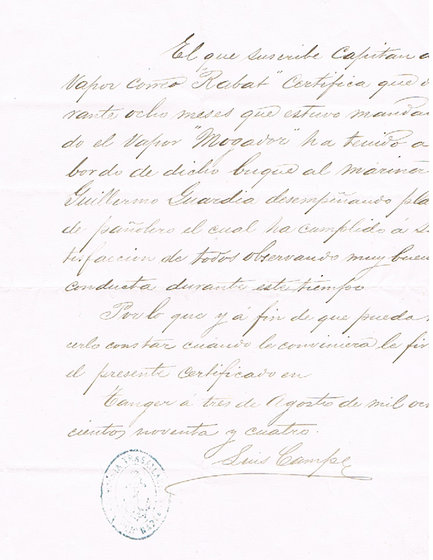 El que suscribe Capitan d
Vapor correo "Rabat" certifica que d
rante ocho meses que estuvo manda
do el vapor "Mogador" ha tenido a
bordo de dicho buque al marine
Guillermo Guardia desempeñando pla
de pañolero el cual ha cumplido á s
tisfaccion de todos observando muy buen
conducta durante este tiempo
Por lo que y á fin de que pueda
cerlo constar cuando le conviniera le fir
el presente certificado en
Tanger á tres de Agosto de mil och
cientos noventa y cuatro.
Luis Campe